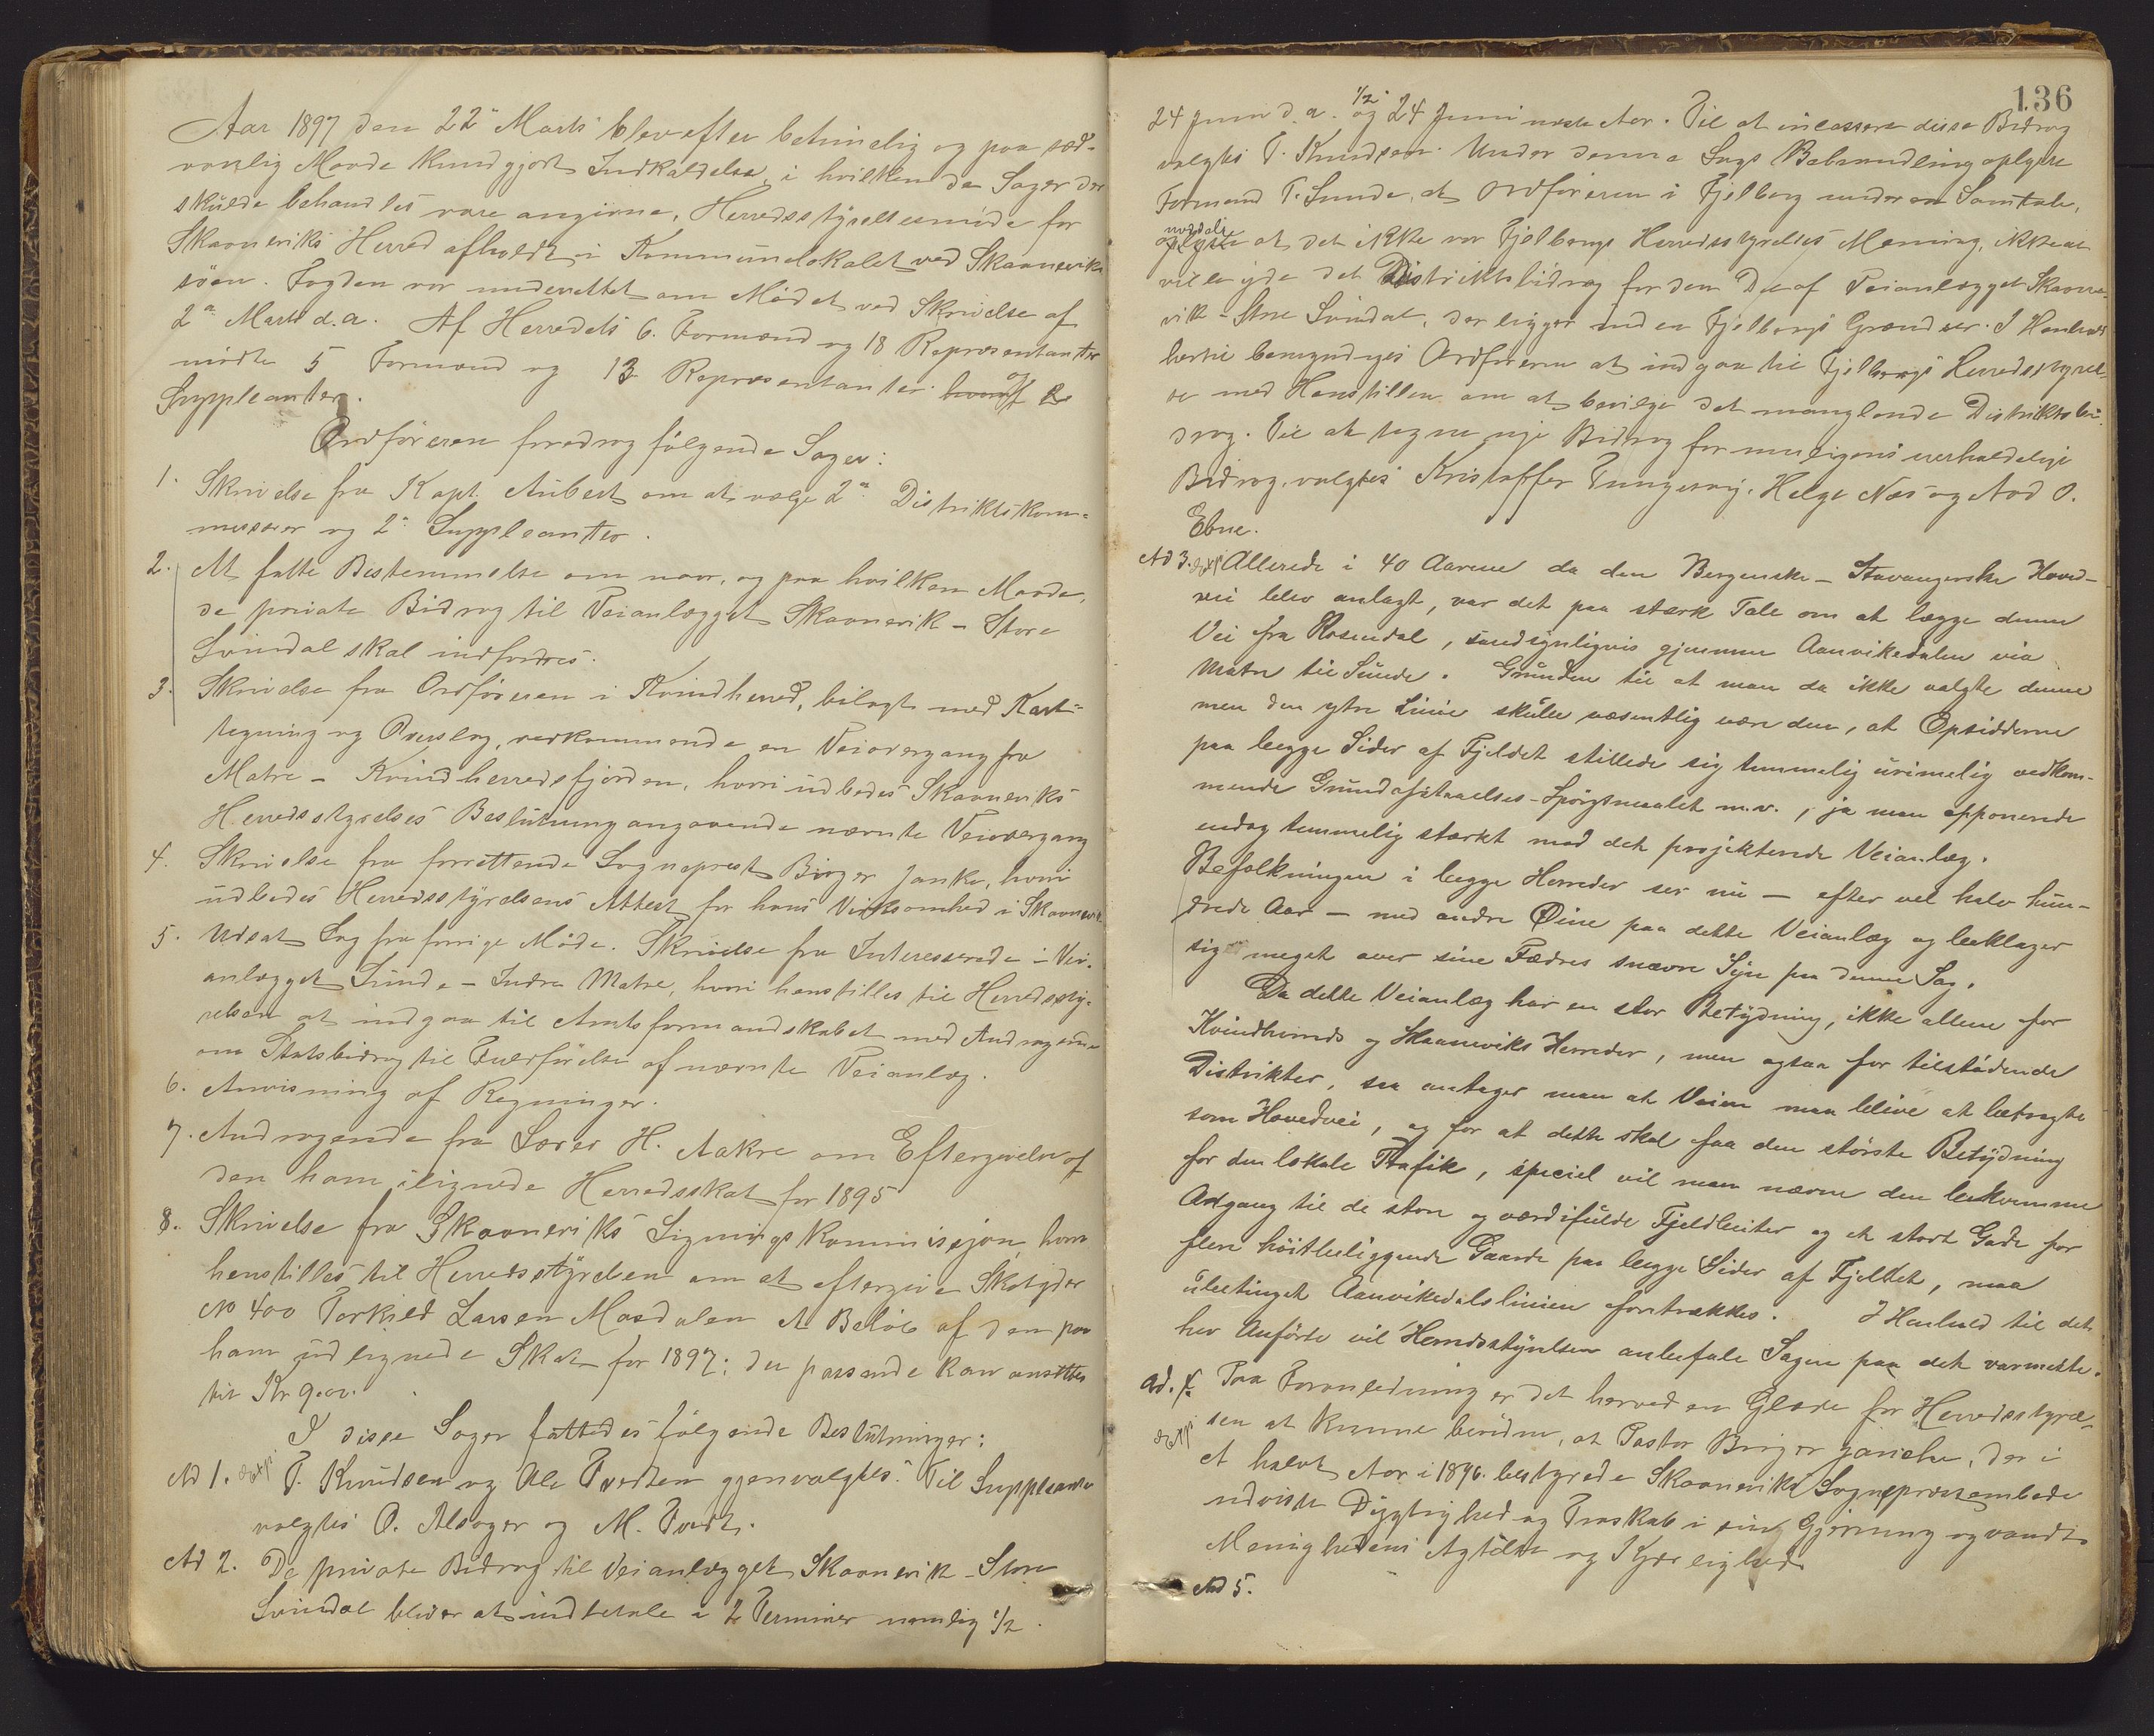 Aar 1897 den 22de Marts blev efter betimelig og paa sæd-
vanlig Maade kundgjort Indkaldelse, i hvilken de Sager der
skulde behandles vare angivne, Herredsstyrelsesmøde for
Skaaneviks Herred afholdt i Kommunelokalet ved Skaanevik-
søen. Fogden var underrettet om Mødet ved Skrivelse af
2den Marts d.a. Af Herredets 6 Formænd og 18 Repræsentanter
mødte 5 Formænd og 13 Repræsentanter hvoraf 2
Suppleanter.
Ordføreren foredrog følgende Sager:
1. Skrivelse fra Kapt. Aubert om at vælge 2de Distriktskom-
missærer og 2de Suppleanter.
2. At fatte Bestemmelse om naar, og paa hvilken Maade,
de private Bidrag til Veianlægget Skaanevik - Store
Svindal skal indfordres.
3. Skrivelse fra Ordføreren i Kvindherred, bilagt med Kart-
tegning og Overslag, vedkommende en Veiovergang fra
Matre - Kvindherredsfjorden, hvori udbedes Skaaneviks
Herredsstyrelses Beslutning angaaende nævnte Veiovergang
4. Skrivelse fra forrettende Sogneprest Birger Janke, hvori
udbedes Herredsstyrelsens Attest for hans Virksomhed i Skaanevik
5. Udsat Sag fra forrige Møde. Skrivelse fra Interesserede i Vei-
anlægget Sunde - Indre Matre, hvori henstilles til Herredssty-
relsen at indgaa til Amtsformandskabet med Andragende
om Statsbidrag til Fuldførelse af nævnte Veianlæg.
6. Anvisning af Regninger.
7. Andragende fra Lærer H. Aakre om Eftergivelse af
den ham ilignede Herredsskat for 1895
8. Skrivelse fra Skaaneviks Ligningskommissjon, hvori
henstilles til Herredsstyrelsen om at eftergive Skatyder
No 400 Torkild Larsen Mosdalen et Beløb af den paa
ham udlignede Skat for 1897; der passende kan ansættes
til Kr 9.00.
I disse Sager fattedes følgende Beslutninger:
Ad 1. Expd. T. Knudsen og Ole Tvedten gjenvalgtes. Til Suppleanter
valgtes O. Alsager og M. Tvedt.
Ad 2. De private Bidrag til Veianlægget Skaanevik - Store
Svindal bliver at indbetale i 2 Terminer nemlig 1/2
136
24 Juni d.a. og 1/2 24 Juni næste Aar. Til at incassere disse Bidrag
valgtes T. Knudsen. Under denne Sags Behandling oplyste
Formand T. Sunde, at Ordføreren i Fjelberg under en Samtale,
meddelte
oplyste at det ikke var Fjelbergs Herredsstyrelses Mening, ikke at
ville yde det Distriktsbidrag for den Del af Veianlægget Skaane-
vik - Store Svindal, der ligger inden Fjelbergs Grændser. I Henhold
hertil bemyndiges Ordføreren at indgaa til Fjelbergs Herredsstyrel-
se med Henstillen om at bevilge det manglende Distriktsbi-
drag. Til at tegne nye Bidrag for muligens uerholdelige
Bidrag, valgtes Kristoffer Tungesvig, Helge Næs og Aad O.
Ebne.
Ad 3. Expd. Allerede i 40 Aarene da den Bergenske - Stavangerske Hoved-
vei blev anlagt, var det paa stærk Tale om at lægge denne
Vei fra Rosendal, sandsynligvis gjennem Aanvikedalen via
Matre til Sunde. Grunden til at man da ikke valgte denne
men den ytre Linie skulle væsentlig være den, at Opsidderne
paa begge Sider af Fjeldet stillede sig temmelig urimelig vedkom-
mende Grundafstaaelses-Spørgsmaalet m.v., ja man opponerede
endog temmelig stærkt mod det projekterede Veianlæg.
Befolkningen i begge Herreder ser nu - efter vel halv hun-
drede Aar - med andre Øine paa dette Veianlæg og beklager
sig meget over sine Fædres snævre Syn paa denne Sag.
Da dette Veianlæg har en stor Betydning, ikke allene for
Kvindherreds og Skaaneviks Herreder, men ogsaa for tilstødende
Distrikter, saa antager man at Veien maa blive at betragte
som Hovedvei, og for at dette skal faa den største Betydning
for den lokale Trafik, speciel vil man nævne den bekvemme
Adgang til de store og værdifulde Fjeldbeiter og et stort Gode for
flere høitbeliggende Gaarde paa begge Sider af Fjeldet, maa
ubetinget Aanvikedalslinien foretrækkes. I Henhold til det
her Anførte vil Herredsstyrelsen anbefale Sagen paa det varmeste.
Ad. 4. Paa Foranledning er det herved en Glæde for Herredsstyrel-
Expd. sen at kunne bevidne, at Pastor Birger Janche, der i
et halvt Aar i 1896 bestyrede Skaaneviks Sogneprestembede
udviste Dygtighed og Troskab i sin Gjerning og vandt
Menighedens Agtelse og Kjærlighed
Ad 5.